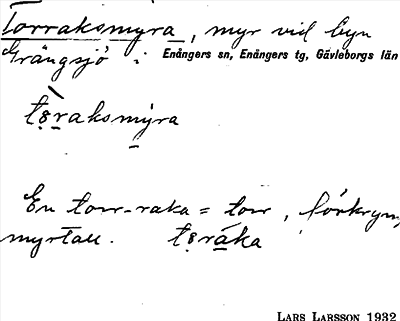 Torraksmyra, myr vid byn
Grängsjö i Enångers sn, Enångers tg, Gävleborgs län
tɜraksmyra
En torr-raka = torr, förkrym
myrtall. tɜráka
LARS LARSSON 1932